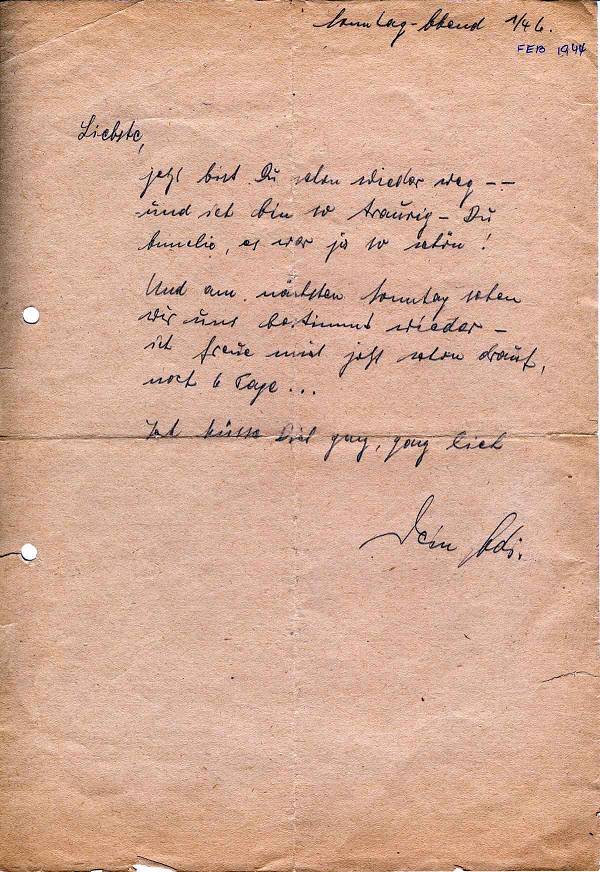 Sonntag-Abend 1/46.
FEB 1944
Liebste,
jetzt bist Du schon wieder weg --
und ich bin so traurig - Du
, es war ja so schön!
Und am nächsten Sonntag sehen
wir uns bestimmt wieder -
ich freue mich jetzt schon drauf,
noch 6 Tage...
Ich küsse Dich ganz, ganz lieb
Dein Adi.